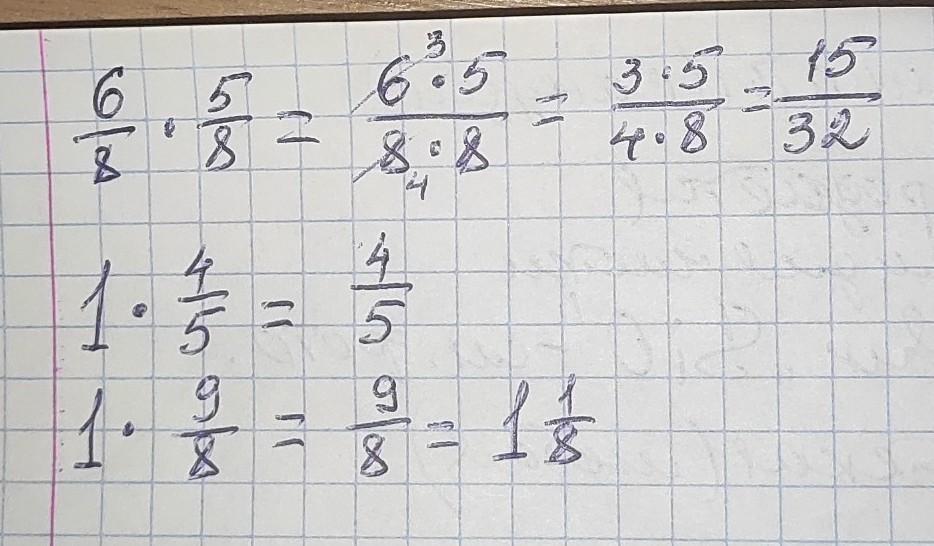 6/8 · 5/8 = 6³·5/8₄·8 = 3·5/4·8 = 15/32
1 · 4/5 = 4/5
1 · 9/8 = 9/8 = 1 1/8